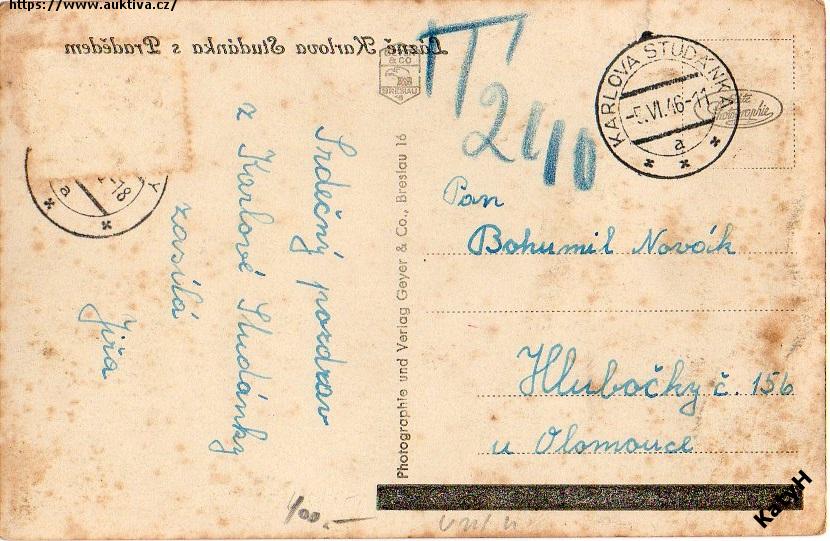 https://www.auktiva.cz/
Lázně Karlova Studánka s Pradědem
& CO
BRESLAU
T
24/10
KARLOVA STUDÁNKA
-5.VI.46-11
a
Photographie
-18
a
Srdečný pozdrav
z Karlové Studánky
zasílá
Jiřa
Photographie und Verlag Geyer & Co., Breslau 16
Pan
Bohumil Novák
Hlubočky č. 156
u Olomouce
400.—
KatyH